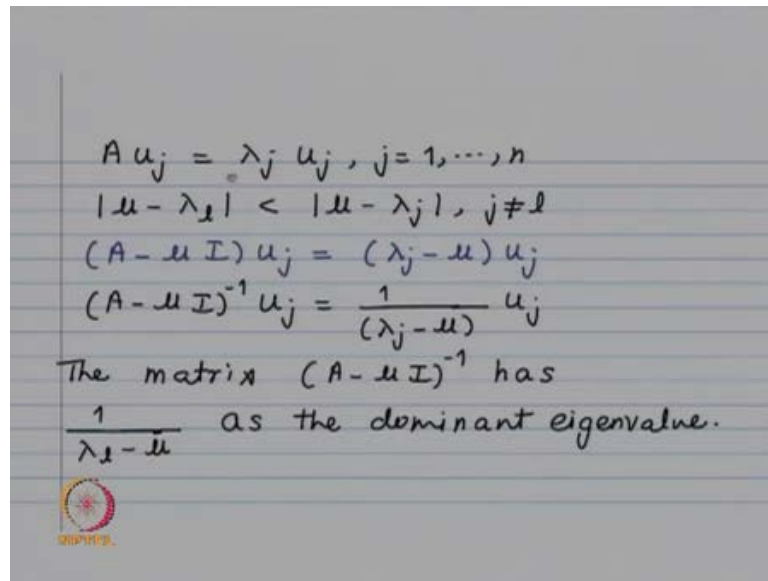 A u_j = λ_j u_j, j = 1, ⋯, n
|μ - λ_l| < |μ - λ_j|, j ≠ l
(A - μ I) u_j = (λ_j - μ) u_j
(A - μ I)^{-1} u_j = 1/(λ_j - μ) u_j
The matrix (A - μ I)^{-1} has
1/(λ_l - μ) as the dominant eigenvalue.
NPTEL